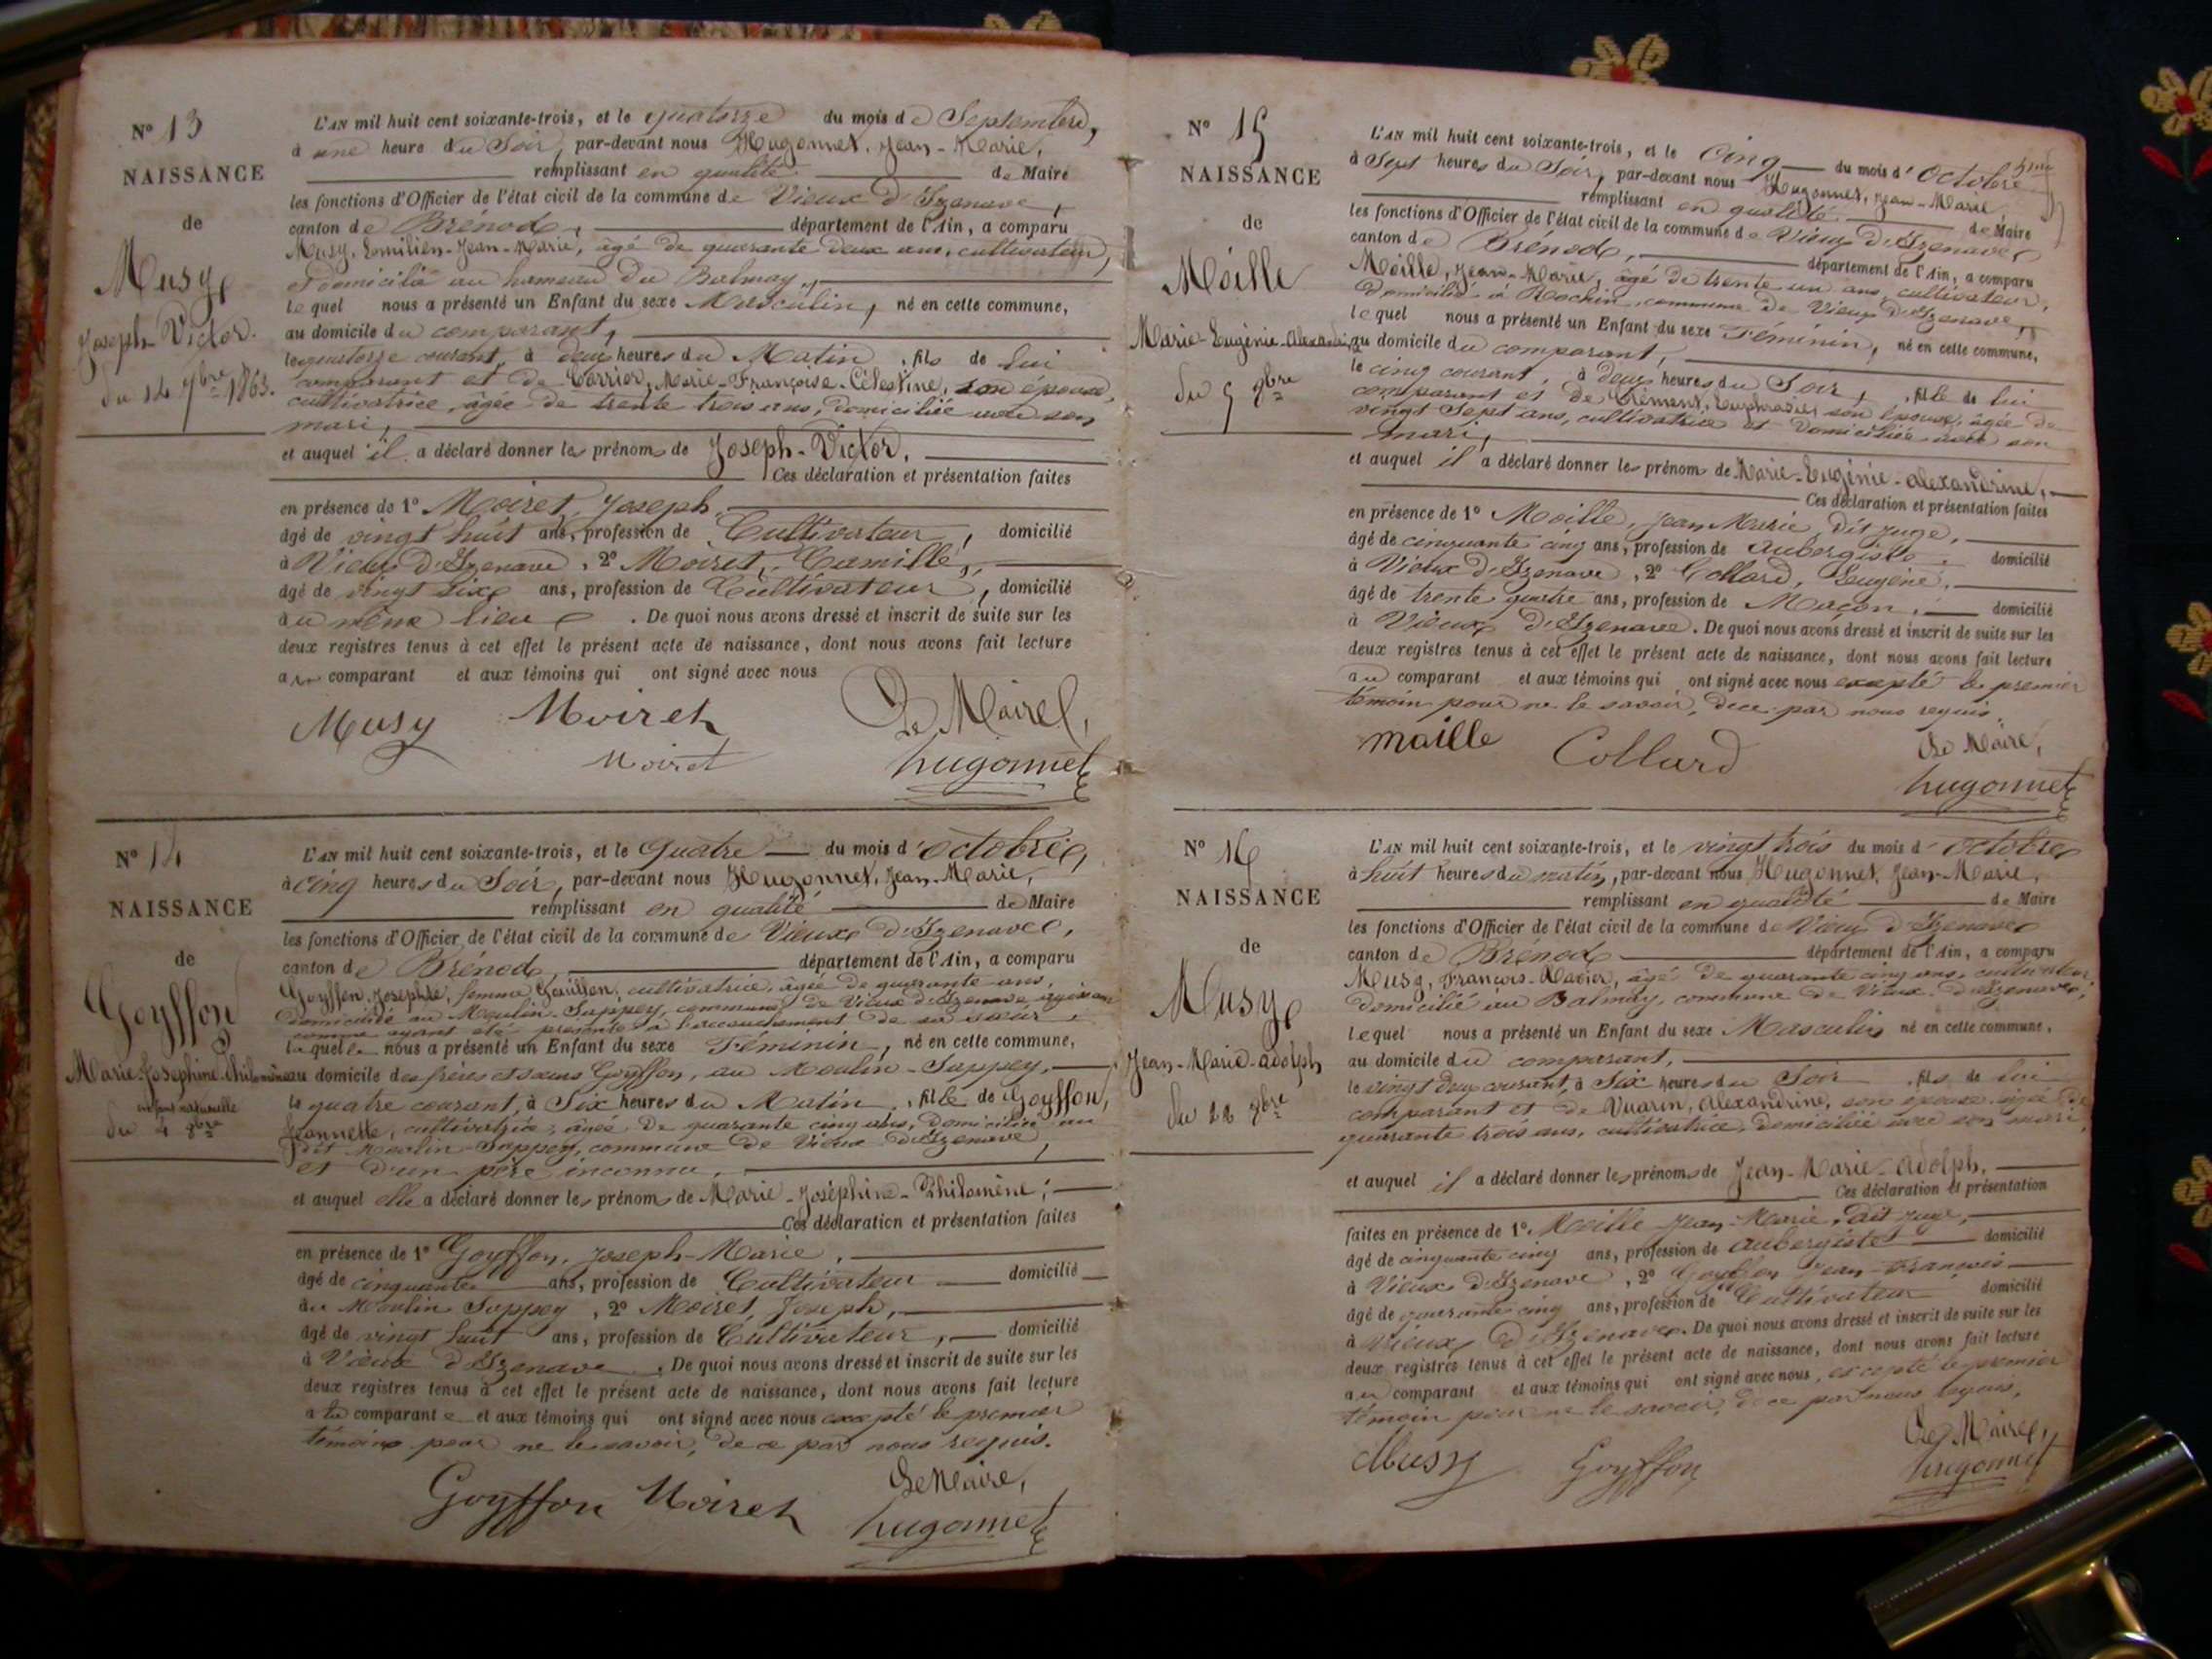 N° 13
NAISSANCE
de
Musy
Joseph-Victor.
du 14 7bre 1863.
L'AN mil huit cent soixante-trois, et le quatorze du mois de Septembre,
à une heure du Soir, par-devant nous Hugonnet, Jean-Marie,
remplissant en qualité de Maire
les fonctions d'Officier de l'état civil de la commune de Vieux d'Izenave,
canton de Brénod, département de l'Ain, a comparu
Musy, Emilien-Jean-Marie, âgé de quarante deux ans, cultivateur,
domicilié au hameau du Balmay,
lequel nous a présenté un Enfant du sexe Masculin, né en cette commune,
au domicile du comparant,
le quatorze courant, à deux heures du Matin, fils de lui
comparant et de Carrier, Marie-Françoise-Célestine, son épouse,
cultivatrice, âgée de trente trois ans, domiciliée avec son
mari,
et auquel il a déclaré donner les prénoms de Joseph-Victor.
Ces déclaration et présentation faites
en présence de 1° Moiret, Joseph,
âgé de vingt huit ans, profession de Cultivateur, domicilié
à Vieux d'Izenave, 2° Moiret, Camille,
âgé de vingt six ans, profession de Cultivateur, domicilié
au même lieu. De quoi nous avons dressé et inscrit de suite sur les
deux registres tenus à cet effet le présent acte de naissance, dont nous avons fait lecture
au comparant et aux témoins qui ont signé avec nous
Musy Moiret Le Maire,
Moiret hugonnet
N° 14
NAISSANCE
de
Goyffon
Marie-Joséphine-Philomène
enfant naturelle
du 4 8bre
L'AN mil huit cent soixante-trois, et le Quatre du mois d'octobre,
à cinq heures du Soir, par-devant nous Hugonnet, Jean-Marie,
remplissant en qualité de Maire
les fonctions d'Officier de l'état civil de la commune de Vieux d'Izenave,
canton de Brénod, département de l'Ain, a comparu
Goyffon, Josephte, femme Goyffon, cultivatrice, âgée de quarante ans,
domiciliée au Moulin-Suppey, commune de Vieux d'Izenave, agissant
comme ayant été présente à l'accouchement de sa soeur,
laquelle nous a présenté un Enfant du sexe Féminin, né en cette commune,
au domicile des frères et soeurs Goyffon, au Moulin-Suppey,
le quatre courant, à Six heures du Matin, fille de Goyffon,
Jeannette, cultivatrice, âgée de quarante cinq ans, domiciliée au
dit Moulin-Suppey, commune de Vieux d'Izenave,
et d'un père inconnu,
et auquel elle a déclaré donner les prénoms de Marie-Joséphine-Philomène;
Ces déclaration et présentation faites
en présence de 1° Goyffon, Joseph-Marie,
âgé de cinquante ans, profession de Cultivateur domicilié
au Moulin Suppey, 2° Moiret, Joseph,
âgé de vingt huit ans, profession de Cultivateur, domicilié
à Vieux d'Izenave. De quoi nous avons dressé et inscrit de suite sur les
deux registres tenus à cet effet le présent acte de naissance, dont nous avons fait lecture
a la comparante et aux témoins qui ont signé avec nous excepté le premier
témoins pour ne le savoir, de ce par nous requis.
Goyffon Moiret Le Maire,
hugonnet
N° 15
NAISSANCE
de
Moille
Marie-Eugénie-Alexandrine
du 5 8bre
L'AN mil huit cent soixante-trois, et le Cinq du mois d'Octobre
à Sept heures du Soir, par-devant nous Hugonnet, Jean-Marie
remplissant en qualité de Maire
les fonctions d'Officier de l'état civil de la commune de Vieux d'Izenave
canton de Brénod, département de l'Ain, a comparu
Moille, Jean-Marie, âgé de trente un ans, cultivateur,
domicilié à Rochin, commune de Vieux d'Izenave,
lequel nous a présenté un Enfant du sexe Féminin, né en cette commune,
au domicile du comparant,
le cinq courant, à deux heures du Soir, fille de lui
comparant et de Clément, Euphrasie, son épouse, âgée de
vingt Sept ans, cultivatrice et domiciliée avec son
mari,
et auquel il a déclaré donner les prénoms de Marie-Eugénie-alexandrine,
Ces déclaration et présentation faites
en présence de 1° Moille, Jean Marie dit Juge,
âgé de cinquante cinq ans, profession de aubergiste, domicilié
à Vieux d'Izenave, 2° Collard, Eugène,
âgé de trente quatre ans, profession de Maçon, domicilié
à Vieux d'Izenave. De quoi nous avons dressé et inscrit de suite sur les
deux registres tenus à cet effet le présent acte de naissance, dont nous avons fait lecture
au comparant et aux témoins qui ont signé avec nous excepté le premier
témoin pour ne le savoir, de ce par nous requis.
maille Collard Le Maire,
hugonnet
N° 16
NAISSANCE
de
Musy
Jean-Marie-adolph
du 22 8bre
L'AN mil huit cent soixante-trois, et le vingt trois du mois d'octobre
à huit heures du matin, par-devant nous Hugonnet, Jean-Marie,
remplissant en qualité de Maire
les fonctions d'Officier de l'état civil de la commune de Vieux d'Izenave
canton de Brénod département de l'Ain, a comparu
Musy, François-Xavier, âgé de quarante cinq ans, cultivateur,
domicilié au Balmay, commune de Vieux d'Izenave,
lequel nous a présenté un Enfant du sexe Masculin né en cette commune,
au domicile du comparant,
le vingt deux courant, à Six heures du Soir, fils de lui
comparant et de Vuarin, alexandrine, son épouse âgée de
quarante trois ans, cultivatrice, domiciliée avec son mari,
et auquel il a déclaré donner les prénoms de Jean-Marie-adolph,
Ces déclaration et présentation
faites en présence de 1° Moille Jean-Marie, dit Juge,
âgé de cinquante cinq ans, profession de aubergiste domicilié
à Vieux d'Izenave, 2° Goyffon Jean-François
âgé de quarante cinq ans, profession de Cultivateur domicilié
à Vieux d'Izenave. De quoi nous avons dressé et inscrit de suite sur les
deux registres tenus à cet effet le présent acte de naissance, dont nous avons fait lecture
au comparant et aux témoins qui ont signé avec nous, excepté le premier
témoin pour ne le savoir, de ce par nous requis,
Musy Goyffon Le Maire,
hugonnet